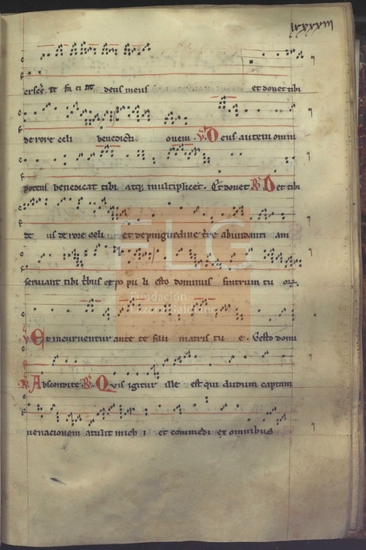 lxxxviii
deus meus et donet tibi
de rore celi benedicti onem V Deus autem omni
potens benedicat tibi atq; multiplicet. Et donet R Det tibi
de us de rore celi et de pinguedine t're abundanti am
seruiant tibi tribus et po pu li esto dominus fratrum tu orum
V Et incuruentur ante te filii matris tu e. Esto domi
R Abscondite R Quis igitur ille est qui dudum captam
uenacionem atulit mich i et comedi ex omnibus